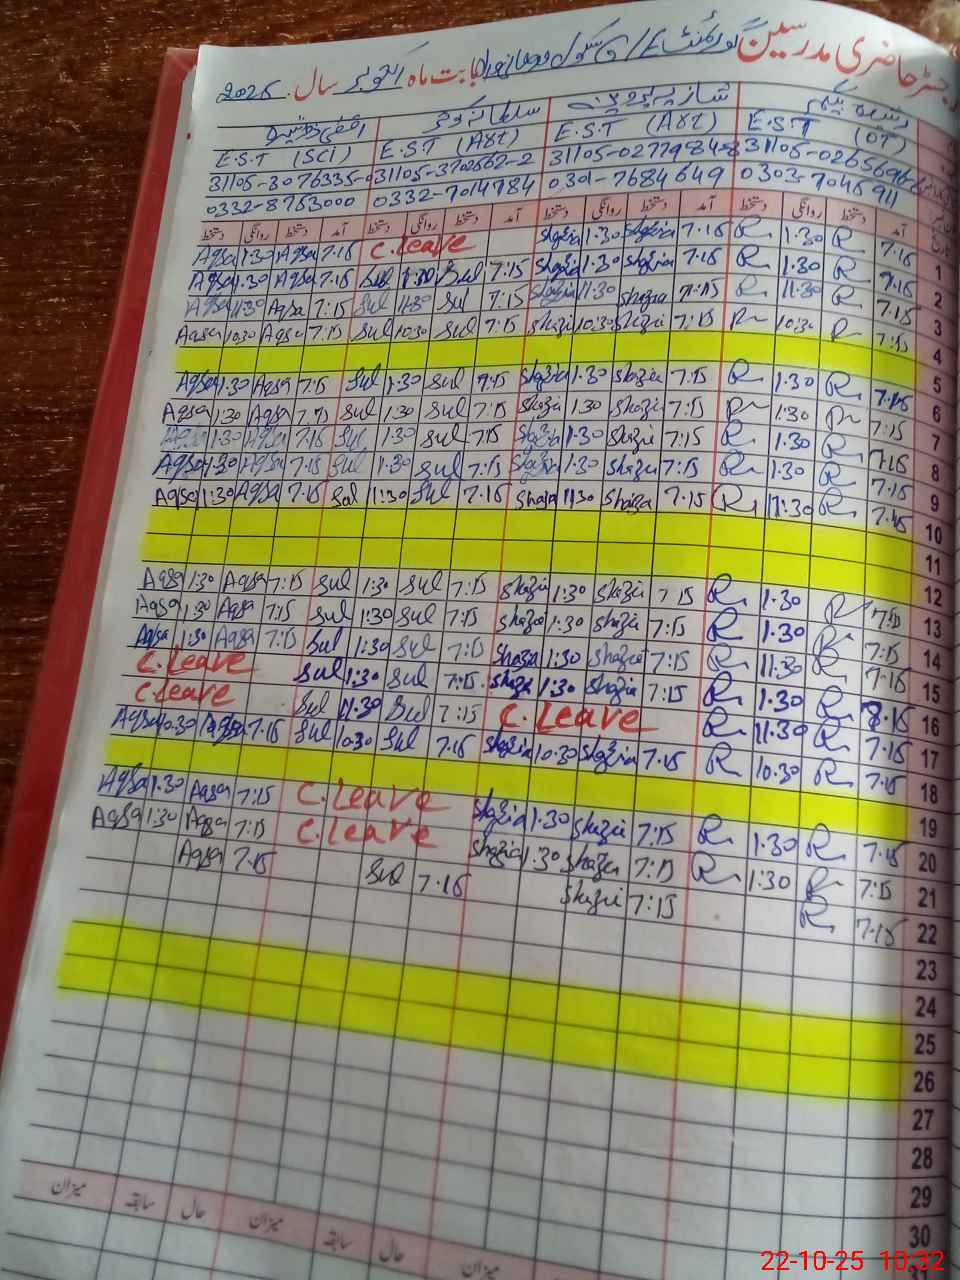 رجسٹر حاضری مدرسین گورنمنٹ بابت ماہ اکتوبر سال 2025
E.S.T (SCI) E.S.T (Art) E.S.T (Art) E.S.T (OT)
31105-3076335- 31105-3702662-2 31105-0277984-8 31105-026569
0332-8763000 0332-7014784 0301-7684649 0303-7046911
دستخط روانگی دستخط آمد دستخط روانگی دستخط آمد دستخط روانگی دستخط آمد دستخط روانگی دستخط آمد
Aqsa 1:30 Aqsa 7:15 C.Leave Shazia 1:30 Shazia 7:15 R 1:30 R 7:15 1
Aqsa 1:30 Aqsa 7:15 Sul 1:30 Sul 7:15 Shazia 1:30 Shazia 7:15 R 1:30 R 7:15 2
Aqsa 11:30 Aqsa 7:15 Sul 11:30 Sul 7:15 Shazia 11:30 Shazia 7:15 R 11:30 R 7:15 3
Aqsa 10:30 Aqsa 7:15 Sul 10:30 Sul 7:15 Shazia 10:30 Shazia 7:15 R 10:30 R 7:15 4
5
Aqsa 1:30 Aqsa 7:15 Sul 1:30 Sul 7:15 Shazia 1:30 Shazia 7:15 R 1:30 R 7:15 6
Aqsa 1:30 Aqsa 7:15 Sul 1:30 Sul 7:15 Shazia 1:30 Shazia 7:15 R 1:30 R 7:15 7
Aqsa 1:30 Aqsa 7:15 Sul 1:30 Sul 7:15 Shazia 1:30 Shazia 7:15 R 1:30 R 7:15 8
Aqsa 1:30 Aqsa 7:15 Sul 1:30 Sul 7:15 Shazia 1:30 Shazia 7:15 R 1:30 R 7:15 9
Aqsa 11:30 Aqsa 7:15 Sul 11:30 Sul 7:15 Shazia 11:30 Shazia 7:15 R 11:30 R 7:15 10
11
12
Aqsa 1:30 Aqsa 7:15 Sul 1:30 Sul 7:15 Shazia 1:30 Shazia 7:15 R 1:30 R 7:15 13
Aqsa 1:30 Aqsa 7:15 Sul 1:30 Sul 7:15 Shazia 1:30 Shazia 7:15 R 1:30 R 7:15 14
Aqsa 1:30 Aqsa 7:15 Sul 1:30 Sul 7:15 Shazia 1:30 Shazia 7:15 R 11:30 R 7:15 15
C.Leave Sul 1:30 Sul 7:15 Shazia 1:30 Shazia 7:15 R 1:30 R 7:15 16
C.Leave Sul 11:30 Sul 7:15 C.Leave R 11:30 R 7:15 17
Aqsa 10:30 Aqsa 7:15 Sul 10:30 Sul 7:15 Shazia 10:30 Shazia 7:15 R 10:30 R 7:15 18
19
Aqsa 1:30 Aqsa 7:15 C.Leave Shazia 1:30 Shazia 7:15 R 1:30 R 7:15 20
Aqsa 1:30 Aqsa 7:15 C.Leave Shazia 1:30 Shazia 7:15 R 1:30 R 7:15 21
Aqsa 7:15 Sul 7:15 Shazia 7:15 R 7:15 22
23
24
25
26
27
28
29
30
میزان سابقہ حال میزان سابقہ حال میزان
22-10-25 10:32